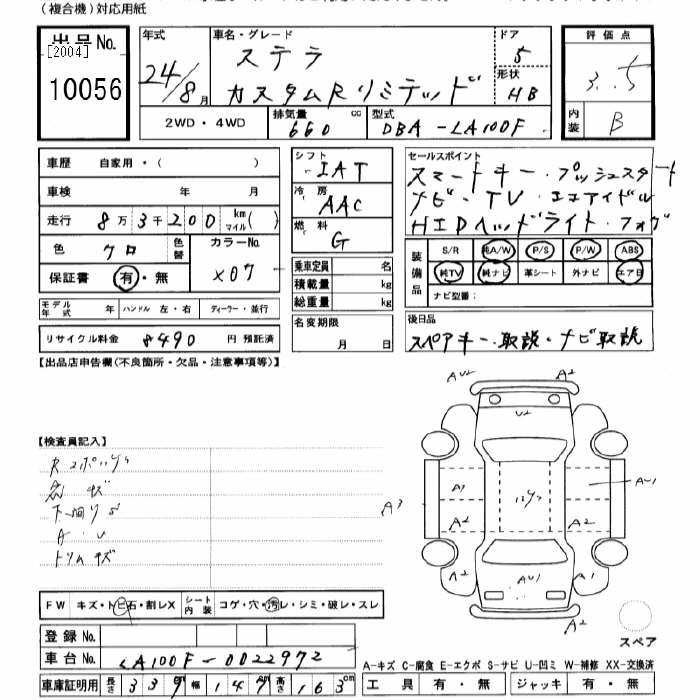 (複合機)対応用紙
出品No.
[2004]
10056
年式
24/8月
車名・グレード
ステラ
カスタムRリミテッド
ドア
5
形状
HB
評価点
3.5
内装
B
2WD・4WD
排気量
660
cc
型式
DBA-LA100F
車歴 自家用・( )
車検 年 月
走行 8万3千200 km マイル( )
色 クロ
色替
カラーNo.
X07
保証書 有・無
モデル年式 年 ハンドル 左・右 ディーラー・並行
リサイクル料金 8490 円 預託済
シフト
IAT
冷房
AAC
燃料
G
乗車定員 名
積載量 kg
総重量 kg
名変期限
月 日
セールスポイント
スマートキー・プッシュスタート
ナビ・TV・エコアイドル
HIDヘッドライト・フォグ
装備品
S/R 純A/W P/S P/W ABS
純TV 純ナビ 革シート 外ナビ エアB
ナビ型番:
後日品
スペアキー・取説・ナビ取説
【出品店申告欄(不良箇所・欠品・注意事項等)】
【検査員記入】
下廻りS
A・U
トリムキズ
FW キズ・トビ石・割レX
シート内装 コゲ・穴・汚レ・シミ・破レ・スレ
登録No.
車台No. LA100F-0022972
車庫証明用 長さ 339 幅 147 高さ 163 cm
AU2
A2
U2
A3
A1
A2
AU1
A2
A2
AU1
A1
A2
スペア
A-キズ C-腐食 E-エクボ S-サビ U-凹ミ W-補修 XX-交換済
工具 有・無 ジャッキ 有・無